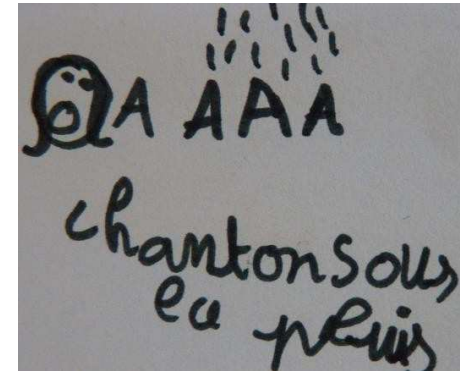 A A A A
chantonsous
la pluis